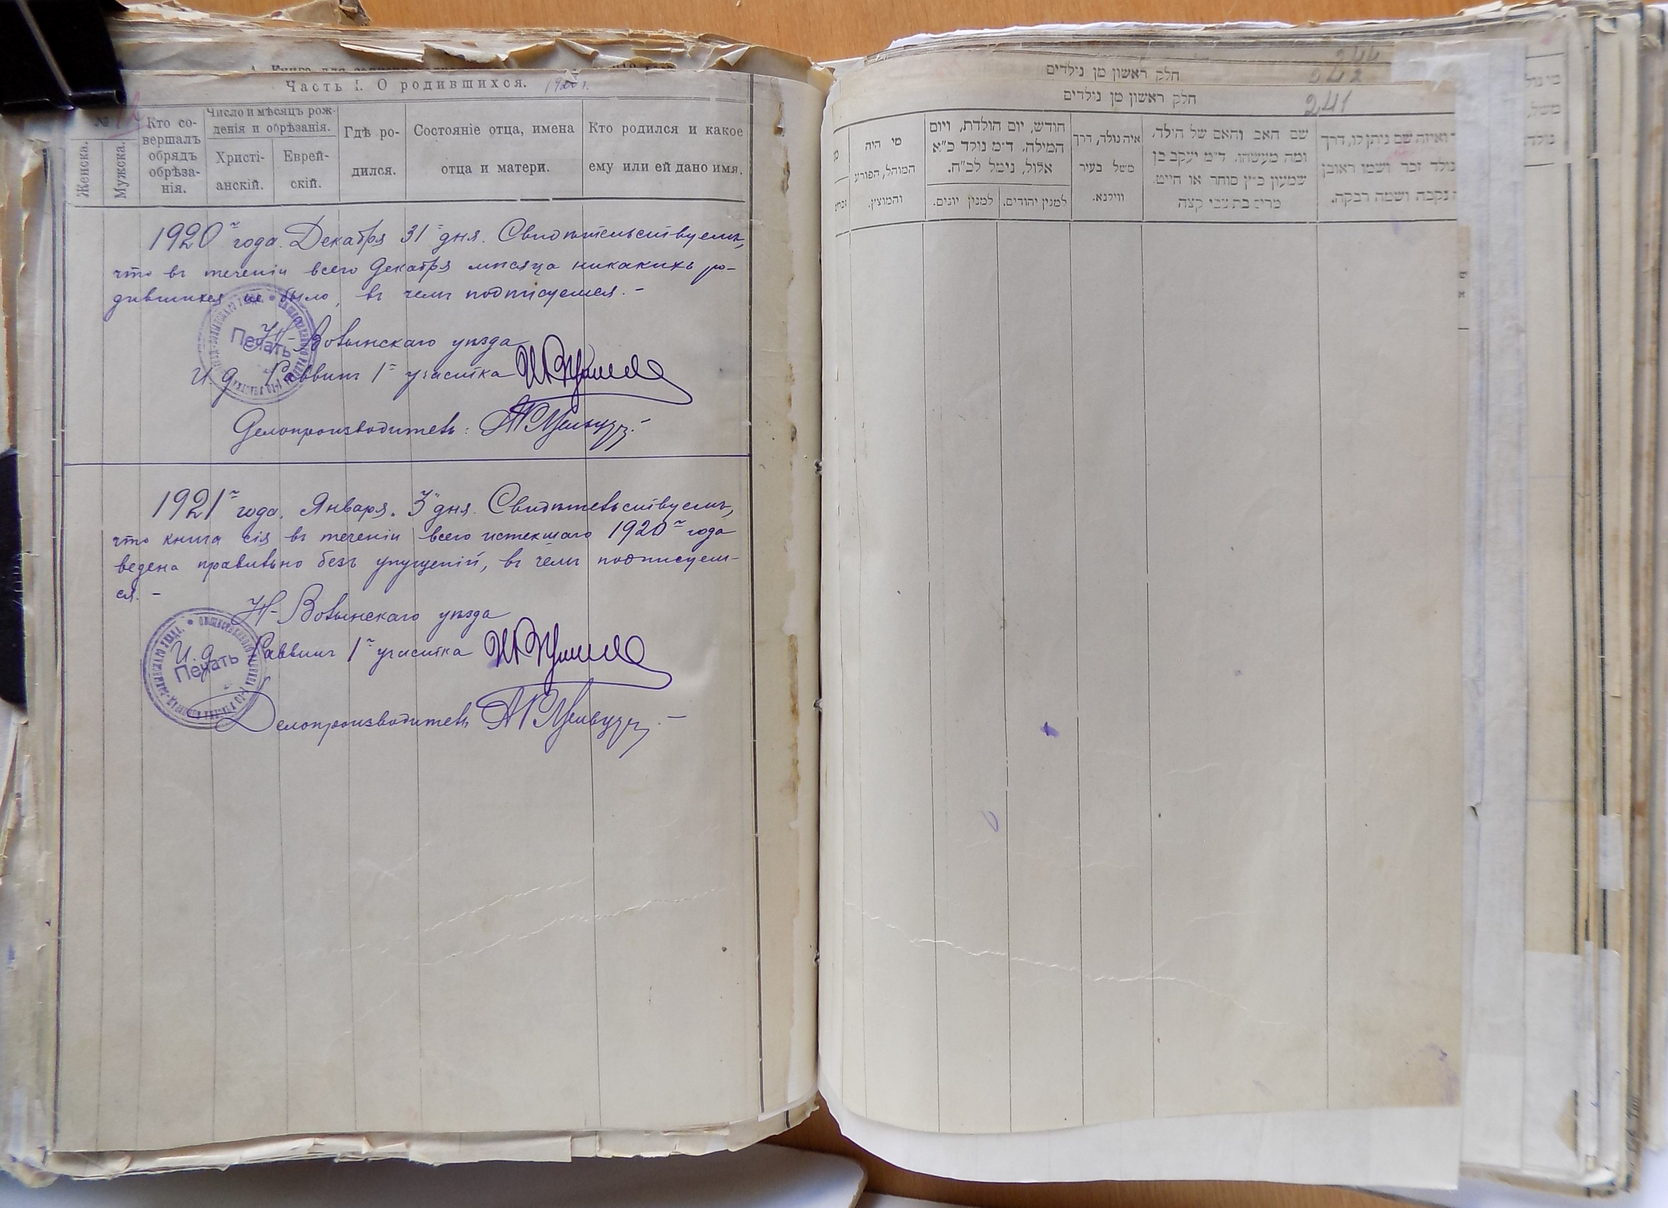 Часть I. О родившихся. 1920 г.
№
Женска.
Мужска.
Кто совершалъ обрядъ обрѣзанія.
Число и мѣсяцъ рожденія и обрѣзанія.
Христіанскій.
Еврейскій.
Гдѣ родился.
Состояніе отца, имена отца и матери.
Кто родился и какое ему или ей дано имя.
1920 г. года. Декабря 31 дня. Свидѣтельствуемъ,
что въ теченіи всего Декабря мѣсяца никакихъ ро-
дившихся не было, въ чемъ подписуемся. -
Н-Волынскаго уѣзда
И. д. Раввинъ 1 г. участка
Дѣлопроизводитель:
Печать
1921 г. года. Января. 3 дня. Свидѣтельствуемъ,
что книга сія въ теченіи всего истекшаго 1920 г. года
ведена правильно безъ упущеній, въ чемъ подписуем-
ся. -
Н-Волынскаго уѣзда
И. д. Раввинъ 1 г. участка
Дѣлопроизводитель
Печать
חלק ראשון מן נולדים
חלק ראשון מן נולדים
241
מי היה
המוהל, הפורע
והמוצץ.
חודש, יום הולדת, ויום
המילה. ד״מ נולד כ״א
אלול, נימל לכ״ח.
למנין יונים.
למנין יהודים.
איה נולד, דרך
משל בעיר
ווילנא.
שם האב והאם של הילד,
ומה מעשהו. ד״מ יעקב בן
שמעון כ״ץ סוחר או חייט.
ואיזה שם ניתן לו, דרך
נולד זכר ושמו ראובן
נקבה ושמה רבקה.